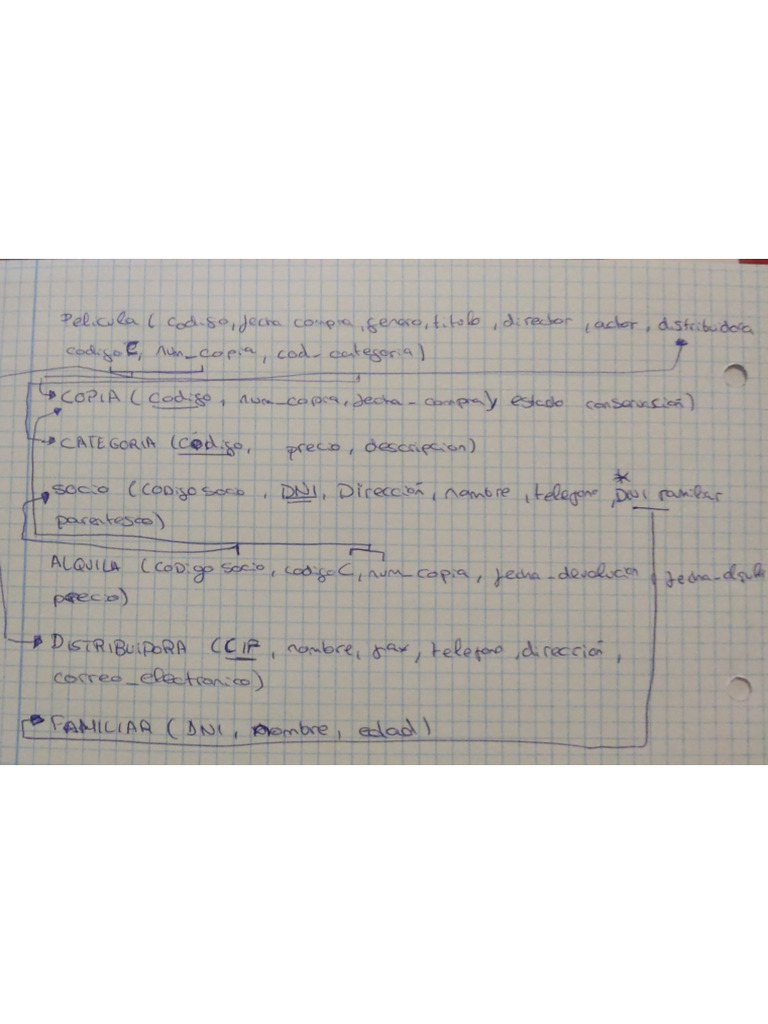 Pelicula ( codigo, fecha compra, genero, titulo, director, actor, distribuidora
codigoC, num_copia, cod_categoria)
COPIA ( codigo, num_copia, fecha_compra, estado conservasión)
CATEGORIA (código, precio, descripcion)
SOCIO (CODigo socio, DNI, Dirección, nombre, telefono, *DNI familiar
parentesco)
ALQUILA (CODigo socio, codigoC, num_copia, fecha_devolucion, 
precio)
DISTRIBUIDORA (CIF, nombre, fax, telefono, dirección,
correo_electronico)
FAMILIAR (DNI, nombre, edad)